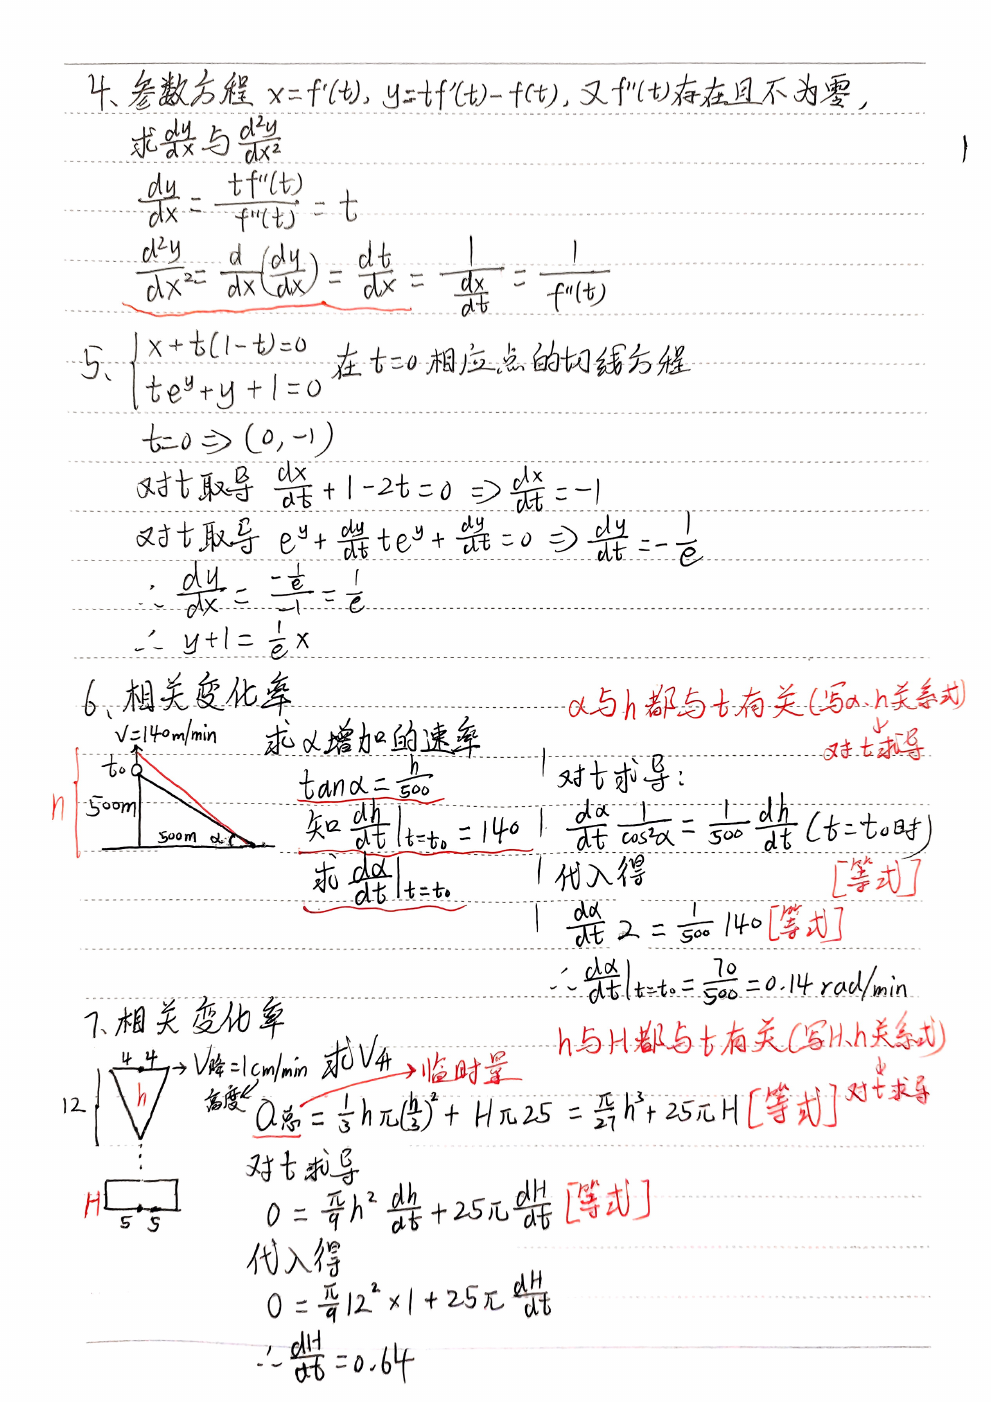 4、参数方程 x=f'(t), y=tf'(t)-f(t), 又f''(t)存在且不为零,
求dy/dx与d²y/dx²
dy/dx = tf''(t)/f''(t) = t
d²y/dx² = d/dx(dy/dx) = dt/dx = 1/(dx/dt) = 1/f''(t)
5、{x+t(1-t)=0 te^y+y+1=0 在t=0相应点的切线方程
t=0 => (0,-1)
对t取导 dx/dt+1-2t=0 => dx/dt=-1
对t取导 e^y+dy/dt te^y+dy/dt=0 => dy/dt=-1/e
∴ dy/dx = (-1/e)/(-1) = 1/e
∴ y+1=1/e x
6、相关变化率
α与h都与t有关(写α、h关系式)
对t求导
V=140m/min 求α增加的速率
t₀
h
500m
500m α
tanα=h/500
知 dh/dt|t=t₀=140
求 dα/dt|t=t₀
对t求导:
dα/dt 1/cos²α = 1/500 dh/dt (t=t₀时)
[等式]
代入得
dα/dt 2 = 1/500 140 [等式]
∴ dα/dt|t=t₀ = 70/500 = 0.14 rad/min
7、相关变化率
h与H都与t有关(写H、h关系式)
对t求导
4 4 → V降=1cm/min 求V升
高度
临时量
12
h
Q总 = 1/3 hπ(h/3)² + Hπ25 = π/27 h³+25πH [等式]
对t求导
H
5 5
0 = π/9 h² dh/dt + 25π dH/dt [等式]
代入得
0 = π/9 12² × 1 + 25π dH/dt
∴ dH/dt = 0.64